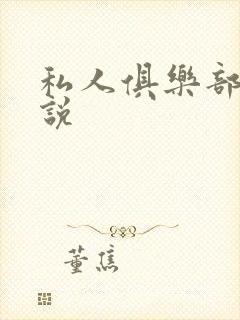 私人俱樂部
說
董焦